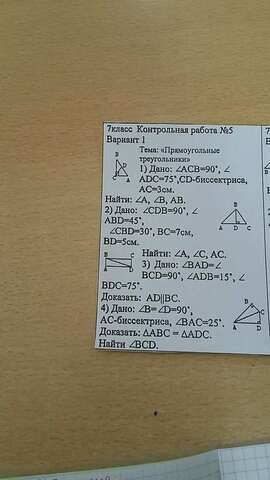 7класс Контрольная работа №5
Вариант 1
Тема: «Прямоугольные
треугольники»
1) Дано: ∠ACB=90°, ∠
ADC=75°,CD-биссектриса,
AC=3см.
Найти: ∠A, ∠B, AB.
2) Дано: ∠CDB=90°, ∠
ABD=45°,
∠CBD=30°, BC=7см,
BD=5см.
Найти: ∠A, ∠C, AC.
3) Дано: ∠BAD=∠
BCD=90°, ∠ADB=15°, ∠
BDC=75°.
Доказать: AD||BC.
4) Дано: ∠B=∠D=90°,
AC-биссектриса, ∠BAC=25°.
Доказать: ΔABC = ΔADC.
Найти ∠BCD.
B
D
C A
B
A D C
B C
A D
B
C
A D